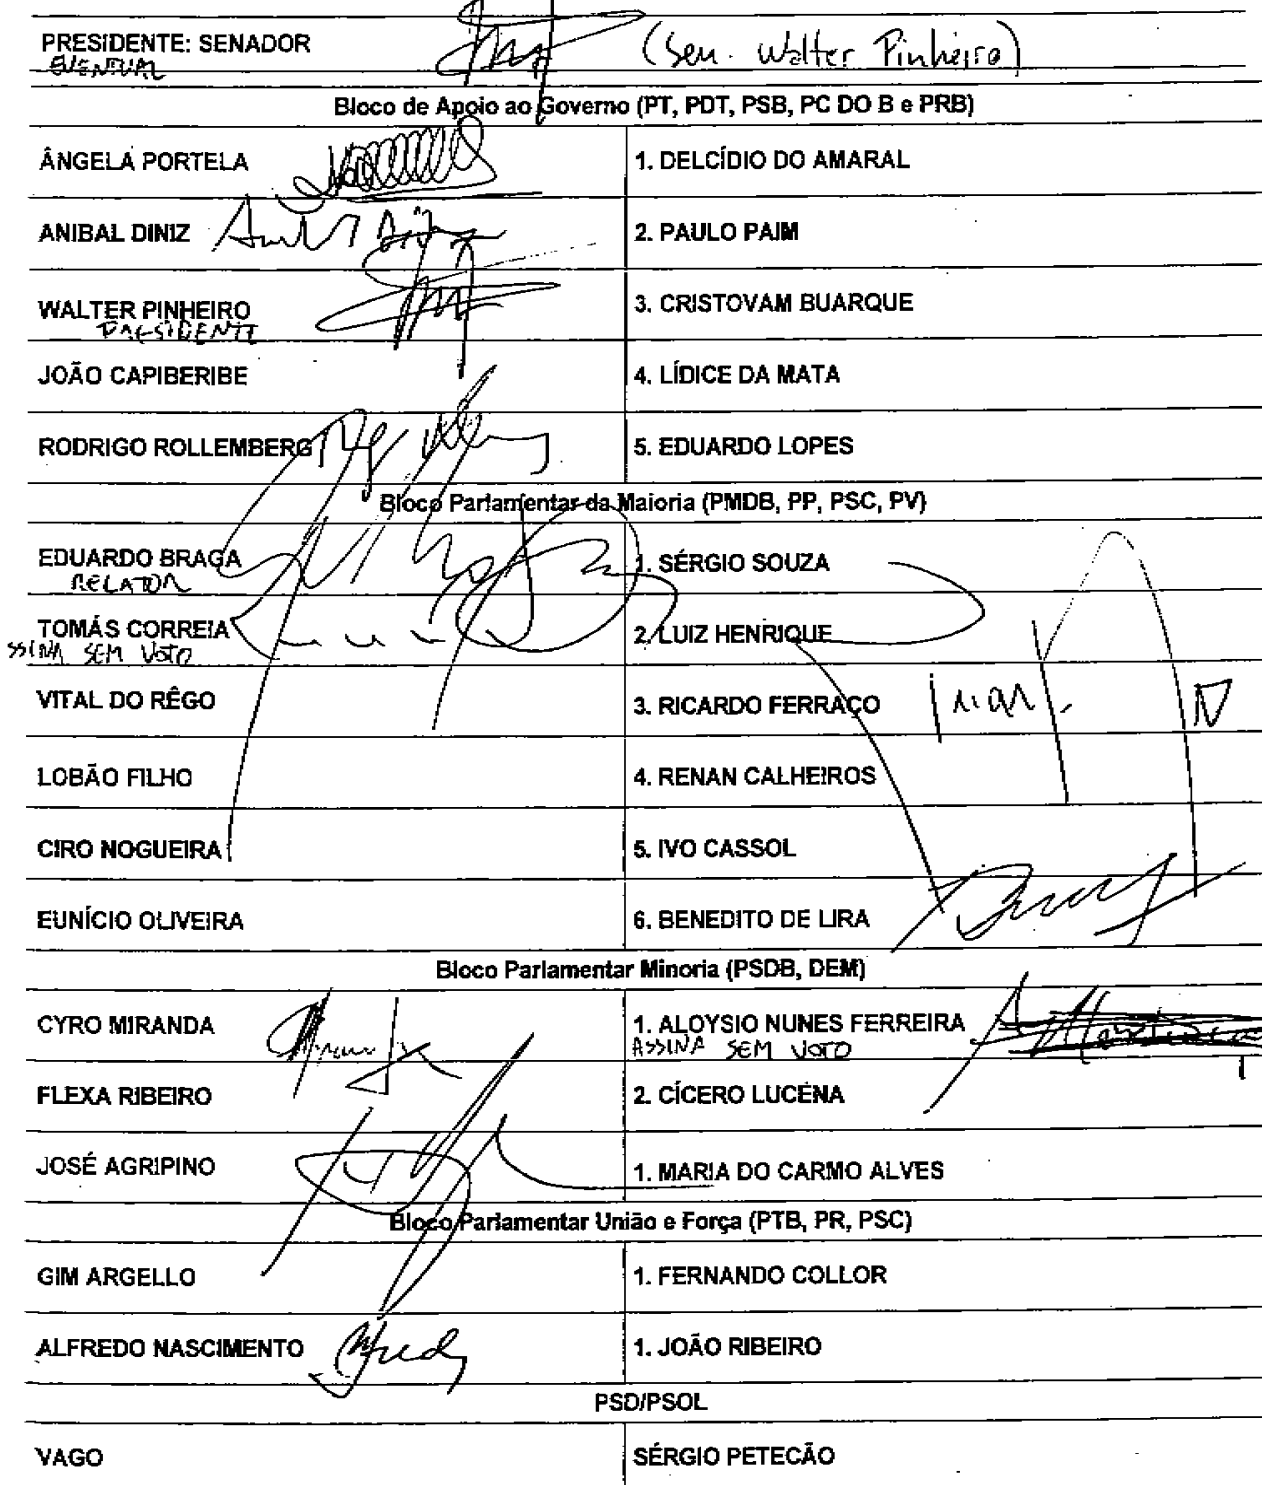 PRESIDENTE: SENADOR (Sen. Walter Pinheiro)
EVENTUAL
Bloco de Apoio ao Governo (PT, PDT, PSB, PC DO B e PRB)
ÂNGELA PORTELA 1. DELCÍDIO DO AMARAL
ANIBAL DINIZ Anibal Diniz 2. PAULO PAIM
WALTER PINHEIRO 3. CRISTOVAM BUARQUE
PRESIDENTE
JOÃO CAPIBERIBE 4. LÍDICE DA MATA
RODRIGO ROLLEMBERG 5. EDUARDO LOPES
Bloco Parlamentar da Maioria (PMDB, PP, PSC, PV)
EDUARDO BRAGA 1. SÉRGIO SOUZA
RELATOR
TOMÁS CORREIA 2. LUIZ HENRIQUE
SSINA SEM VOTO
VITAL DO RÊGO 3. RICARDO FERRAÇO
LOBÃO FILHO 4. RENAN CALHEIROS
CIRO NOGUEIRA 5. IVO CASSOL
EUNÍCIO OLIVEIRA 6. BENEDITO DE LIRA
Bloco Parlamentar Minoria (PSDB, DEM)
CYRO MIRANDA 1. ALOYSIO NUNES FERREIRA
ASSINA SEM VOTO
FLEXA RIBEIRO 2. CÍCERO LUCENA
JOSÉ AGRIPINO 1. MARIA DO CARMO ALVES
Bloco Parlamentar União e Força (PTB, PR, PSC)
GIM ARGELLO 1. FERNANDO COLLOR
ALFREDO NASCIMENTO 1. JOÃO RIBEIRO
PSD/PSOL
VAGO SÉRGIO PETECÃO